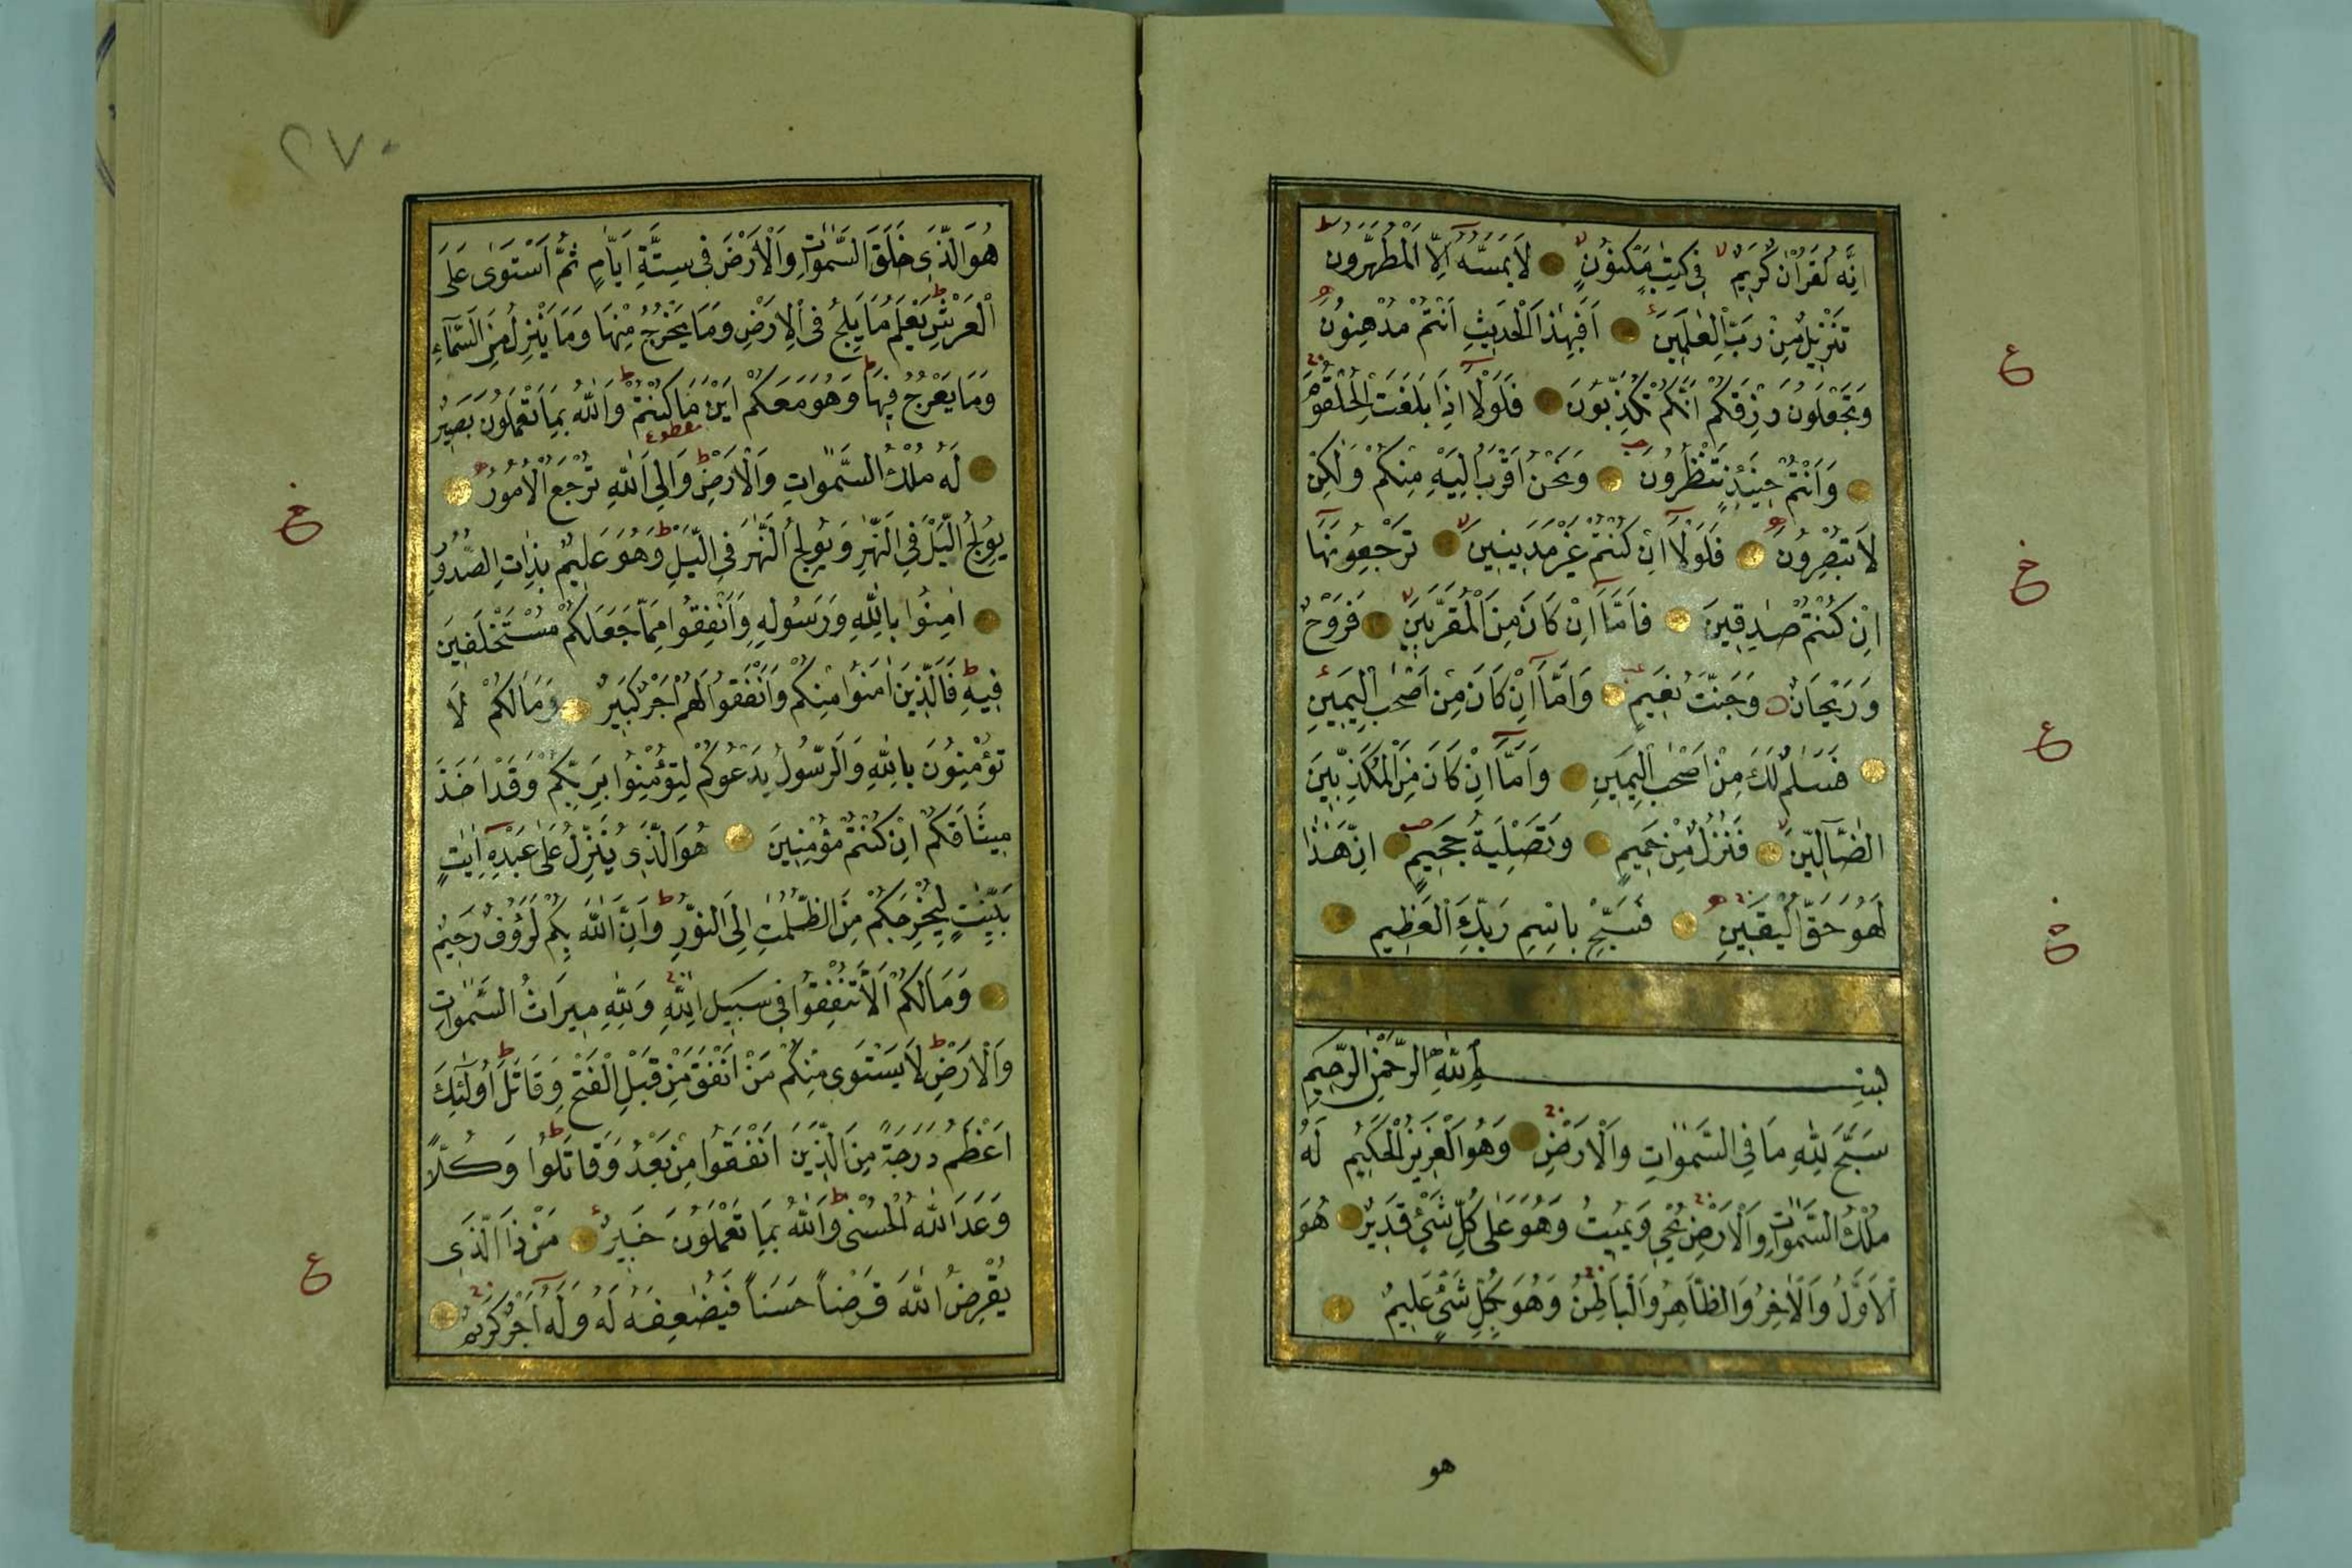 اِنَّهُ لَقُرْاٰنٌ كَرِيمٌ فِى كِتٰبٍ مَكْنُونٍ لَا يَمَسُّهُ اِلَّا الْمُطَهَّرُونَ
تَنْزِيلٌ مِنْ رَبِّ الْعٰلَمِينَ اَفَبِهٰذَا الْحَدِيثِ اَنْتُمْ مُدْهِنُونَ
وَتَجْعَلُونَ رِزْقَكُمْ اَنَّكُمْ تُكَذِّبُونَ فَلَوْلَا اِذَا بَلَغَتِ الْحُلْقُومَ
وَاَنْتُمْ حِينَئِذٍ تَنْظُرُونَ وَنَحْنُ اَقْرَبُ اِلَيْهِ مِنْكُمْ وَلٰكِنْ
لَا تُبْصِرُونَ فَلَوْلَا اِنْ كُنْتُمْ غَيْرَ مَدِينِينَ تَرْجِعُونَهَا
اِنْ كُنْتُمْ صٰدِقِينَ فَاَمَّا اِنْ كَانَ مِنَ الْمُقَرَّبِينَ فَرَوْحٌ
وَرَيْحَانٌ وَجَنَّتُ نَعِيمٍ وَاَمَّا اِنْ كَانَ مِنْ اَصْحٰبِ الْيَمِينِ
فَسَلٰمٌ لَكَ مِنْ اَصْحٰبِ الْيَمِينِ وَاَمَّا اِنْ كَانَ مِنَ الْمُكَذِّبِينَ
الضَّآلِّينَ فَنُزُلٌ مِنْ حَمِيمٍ وَتَصْلِيَةُ جَحِيمٍ اِنَّ هٰذَا
لَهُوَ حَقُّ الْيَقِينِ فَسَبِّحْ بِاسْمِ رَبِّكَ الْعَظِيمِ
بِسْمِ اللّٰهِ الرَّحْمٰنِ الرَّحِيمِ
سَبَّحَ لِلّٰهِ مَا فِى السَّمٰوَاتِ وَالْاَرْضِ وَهُوَ الْعَزِيزُ الْحَكِيمُ لَهُ
مُلْكُ السَّمٰوَاتِ وَالْاَرْضِ يُحْيِى وَيُمِيتُ وَهُوَ عَلٰى كُلِّ شَيْءٍ قَدِيرٌ هُوَ
الْاَوَّلُ وَالْاٰخِرُ وَالظَّاهِرُ وَالْبَاطِنُ وَهُوَ بِكُلِّ شَيْءٍ عَلِيمٌ
هو
ع
ع
ع
ع
٢٧٠
هُوَ الَّذِى خَلَقَ السَّمٰوَاتِ وَالْاَرْضَ فِى سِتَّةِ اَيَّامٍ ثُمَّ اسْتَوٰى عَلَى
الْعَرْشِ يَعْلَمُ مَا يَلِجُ فِى الْاَرْضِ وَمَا يَخْرُجُ مِنْهَا وَمَا يَنْزِلُ مِنَ السَّمَآءِ
وَمَا يَعْرُجُ فِيهَا وَهُوَ مَعَكُمْ اَيْنَ مَا كُنْتُمْ وَاللّٰهُ بِمَا تَعْمَلُونَ بَصِيرٌ
مقطوع
لَهُ مُلْكُ السَّمٰوَاتِ وَالْاَرْضِ وَاِلَى اللّٰهِ تُرْجَعُ الْاُمُورُ
يُولِجُ الَّيْلَ فِى النَّهَارِ وَيُولِجُ النَّهَارَ فِى الَّيْلِ وَهُوَ عَلِيمٌ بِذَاتِ الصُّدُورِ
اٰمِنُوا بِاللّٰهِ وَرَسُولِهِ وَاَنْفِقُوا مِمَّا جَعَلَكُمْ مُسْتَخْلَفِينَ
فِيهِ فَالَّذِينَ اٰمَنُوا مِنْكُمْ وَاَنْفَقُوا لَهُمْ اَجْرٌ كَبِيرٌ وَمَا لَكُمْ لَا
تُؤْمِنُونَ بِاللّٰهِ وَالرَّسُولُ يَدْعُوكُمْ لِتُؤْمِنُوا بِرَبِّكُمْ وَقَدْ اَخَذَ
مِيثَاقَكُمْ اِنْ كُنْتُمْ مُؤْمِنِينَ هُوَ الَّذِى يُنَزِّلُ عَلٰى عَبْدِهِ اٰيٰتٍ
بَيِّنٰتٍ لِيُخْرِجَكُمْ مِنَ الظُّلُمٰتِ اِلَى النُّورِ وَاِنَّ اللّٰهَ بِكُمْ لَرَؤُفٌ رَحِيمٌ
وَمَا لَكُمْ اَلَّا تُنْفِقُوا فِى سَبِيلِ اللّٰهِ وَلِلّٰهِ مِيرَاثُ السَّمٰوَاتِ
وَالْاَرْضِ لَا يَسْتَوِى مِنْكُمْ مَنْ اَنْفَقَ مِنْ قَبْلِ الْفَتْحِ وَقَاتَلَ اُولٰئِكَ
اَعْظَمُ دَرَجَةً مِنَ الَّذِينَ اَنْفَقُوا مِنْ بَعْدُ وَقَاتَلُوا وَكُلًّا
وَعَدَ اللّٰهُ الْحُسْنٰى وَاللّٰهُ بِمَا تَعْمَلُونَ خَبِيرٌ مَنْ ذَا الَّذِى
يُقْرِضُ اللّٰهَ قَرْضاً حَسَناً فَيُضٰعِفَهُ لَهُ وَلَهُ اَجْرٌ كَرِيمٌ
ع
ع